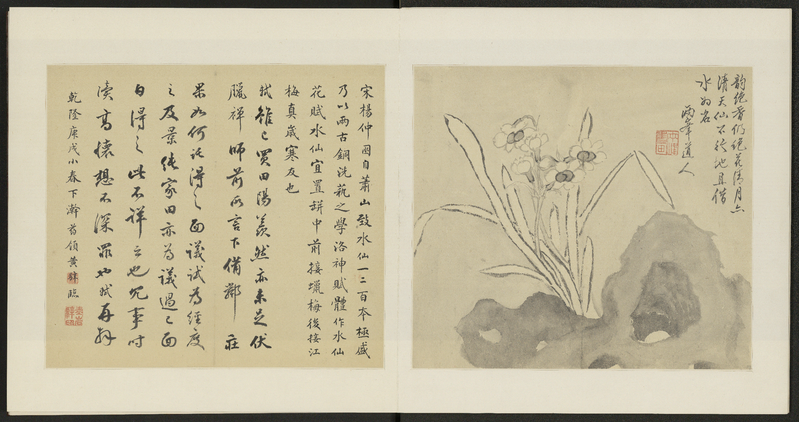 韻絕香仍絕花清月未
清天仙不行地且借
水為名
兩峯道人
宋楊仲囦自蕭山致水仙一二百本極盛
乃以兩古銅洗蓺之學洛神賦體作水仙
花賦水仙宜置缾中前接蠟梅後接江
梅真歲寒友也
軾雖已買田陽羨然亦未足伏
臘禅師前所言下備鄰 莊
果如何託得之面議試為經度
之及景純家田亦為議過已面
白得之此不詳云也冗事時
瀆高懷想不深罪也軾再拜
乾隆庚戌小春下澣 黃 臨